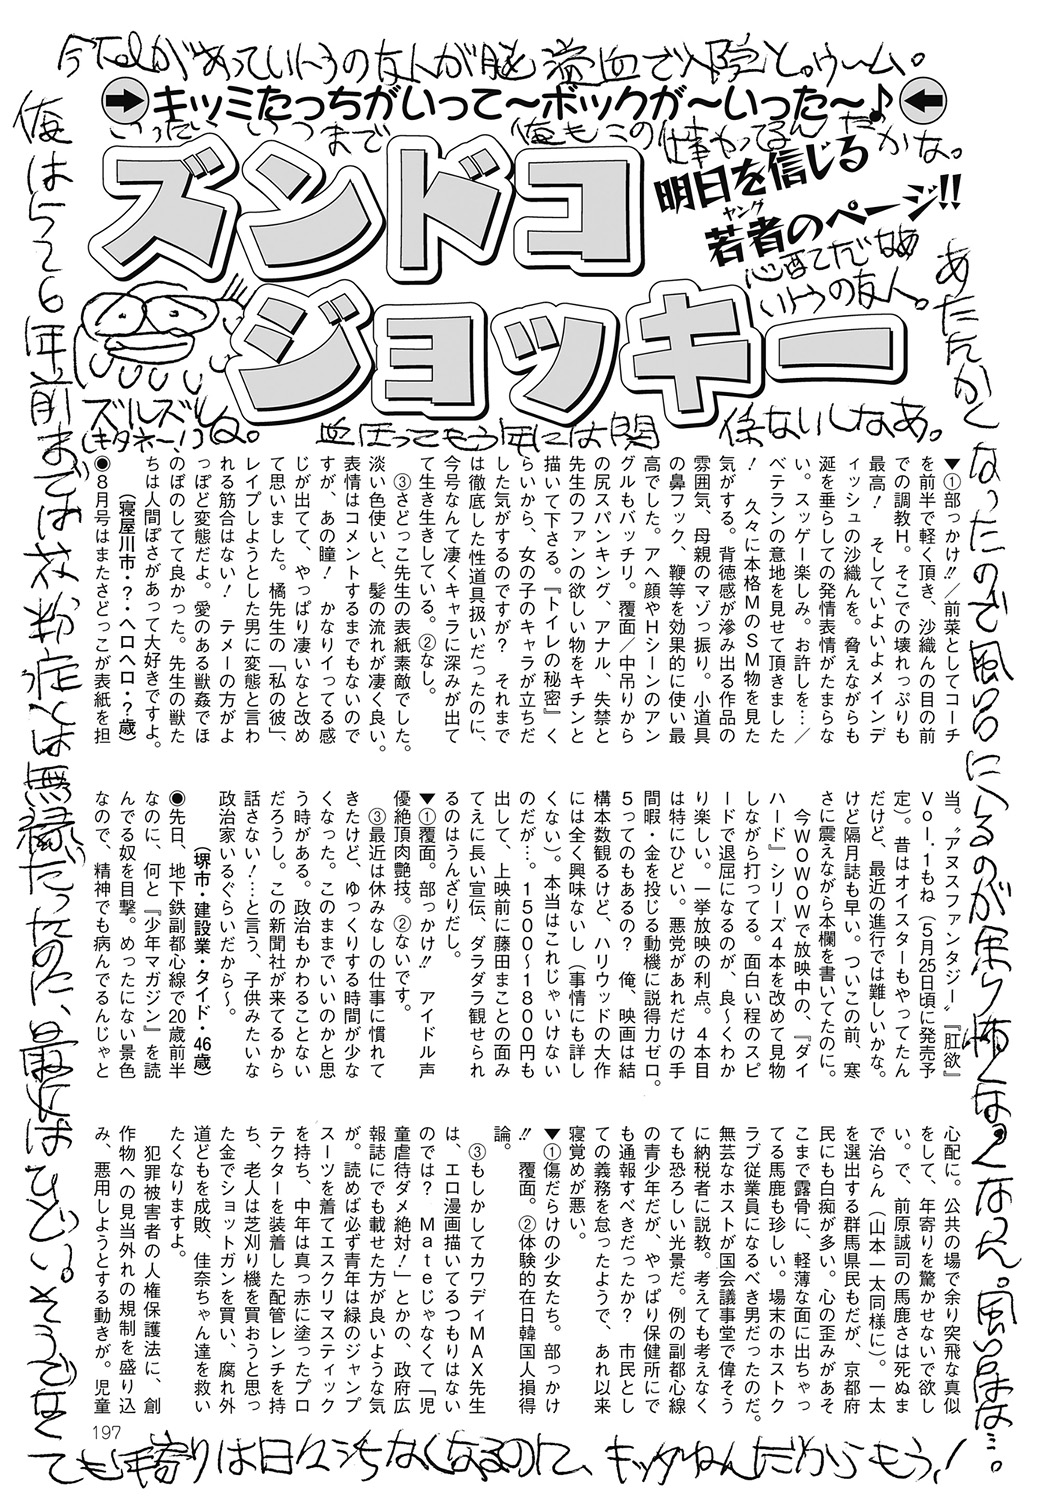 今TELがあっていとうの友人が脳溢血で入院と。ウーム。
キッミたっちがいって〜ボックが〜いった〜♪
いったいいつまで俺もこの仕事やってるんだかな。
ズンドコ
ジョッキー
明日を信じる
若者のページ!!
ヤング
心配だなあ
いとうの友人。
ズルズルね。
(キタネー!)
血圧ってもう年には関係ないしなあ。
あたたかくなったので風呂に入るのが余り怖くなくなった。風呂は…。
俺は5〜6年前までは花粉症とは無縁だったのに、最近はひどい。そうでなくても年寄りは日々うちなくなるのに、キッタねんだからもう!
▼①部っかけ!!／前菜としてコーチ
を前半で軽く頂き、沙織んの目の前
での調教H。そこでの壊れっぷりも
最高！　そしていよいよメインデ
ィッシュの沙織んを。脅えながらも
涎を垂らしての発情表情がたまらな
い。スッゲー楽しみ。お許しを…／
ベテランの意地を見せて頂きました
！　久々に本格MのSM物を見た
気がする。背徳感が滲み出る作品の
雰囲気、母親のマゾっ振り。小道具
の鼻フック、鞭等を効果的に使い最
高でした。アヘ顔やHシーンのアン
グルもバッチリ。覆面／中吊りから
の尻スパンキング、アナル、失禁と
先生のファンの欲しい物をキチンと
描いて下さる。『トイレの秘密』く
らいから、女の子のキャラが立ちだ
した気がするのですが？　それまで
は徹底した性道具扱いだったのに、
今号なんて凄くキャラに深みが出て
て生き生きしている。②なし。
③さどっこ先生の表紙素敵でした。
淡い色使いと、髪の流れが凄く良い。
表情はコメントするまでもないので
すが、あの瞳！　かなりイってる感
じが出てて、やっぱり凄いなと改め
て思いました。橘先生の「私の彼」、
レイプしようとした男に変態と言わ
れる筋合はない！　テメーの方がよ
っぽど変態だよ。愛のある獣姦でほ
のぼのしてて良かった。先生の獣た
ちは人間ぽさがあって大好きですよ。
（寝屋川市・？・ヘロヘロ・？歳）
◉8月号はまたさどっこが表紙を担
当。〝アヌスファンタジー〟『肛欲』
Vol.1もね（5月25日頃に発売予
定）。昔はオイスターもやってたん
だけど、最近の進行では難しいかな。
けど隔月誌も早い。ついこの前、寒
さに震えながら本欄を書いてたのに。
今WOWOWで放映中の、『ダイ
ハード』シリーズ4本を改めて見物
しながら打ってる。面白い程のスピ
ードで退屈になるのが、良〜くわか
り楽しい。一挙放映の利点。4本目
は特にひどい。悪党があれだけの手
間暇・金を投じる動機に説得力ゼロ。
5ってのもあるの？　俺、映画は結
構本数観るけど、ハリウッドの大作
には全く興味ないし（事情にも詳し
くない）。本当はこれじゃいけない
のだが…。1500〜1800円も
出して、上映前に藤田まことの面み
てえに長い宣伝、ダラダラ観せられ
るのはうんざりだし。
▼①覆面。部っかけ!!　アイドル声
優絶頂肉艶技。②ないです。
③最近は休みなしの仕事に慣れて
きたけど、ゆっくりする時間が少な
くなった。このままでいいのかと思
う時がある。政治もかわることない
だろうし。この新聞社が来てるから
話さない！…と言う、子供みたいな
政治家いるぐらいだから〜。
（堺市・建設業・タイド・46歳）
◉先日、地下鉄副都心線で20歳前半
なのに、何と『少年マガジン』を読
んでる奴を目撃。めったにない景色
なので、精神でも病んでるんじゃと
心配に。公共の場で余り突飛な真似
をして、年寄りを驚かせないで欲し
い。で、前原誠司の馬鹿さは死ぬま
で治らん（山本一太同様に）。一太
を選出する群馬県民もだが、京都府
民にも白痴が多い。心の歪みがあそ
こまで露骨に、軽薄な面に出ちゃっ
てる馬鹿も珍しい。場末のホストク
ラブ従業員になるべき男だったのだ。
無芸なホストが国会議事堂で偉そう
に納税者に説教。考えても考えなく
ても恐ろしい光景だ。例の副都心線
の青少年だが、やっぱり保健所にで
も通報すべきだったか？　市民とし
ての義務を怠ったようで、あれ以来
寝覚めが悪い。
▼①傷だらけの少女たち。部っかけ
!!　覆面。②体験的在日韓国人損得
論。
③もしかしてカワディMAX先生
は、エロ漫画描いてるつもりはない
のでは？　Mateじゃなくて「児
童虐待ダメ絶対！」とかの、政府広
報誌にでも載せた方が良いような気
が。読めば必ず青年は緑のジャンプ
スーツを着てエスクリマスティック
を持ち、中年は真っ赤に塗ったプロ
テクターを装着した配管レンチを持
ち、老人は芝刈り機を買おうと思っ
た金でショットガンを買い、腐れ外
道どもを成敗、佳奈ちゃん達を救い
たくなりますよ。
犯罪被害者の人権保護法に、創
作物への見当外れの規制を盛り込
み、悪用しようとする動きが。児童
197